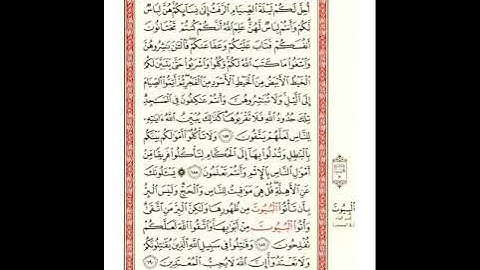 أُحِلَّ لَكُمْ لَيْلَةَ ٱلصِّيَامِ ٱلرَّفَثُ إِلَىٰ نِسَآئِكُمْ هُنَّ لِبَاسٌ
لَّكُمْ وَأَنتُمْ لِبَاسٌ لَّهُنَّ عَلِمَ ٱللَّهُ أَنَّكُمْ كُنتُمْ تَخْتَانُونَ
أَنفُسَكُمْ فَتَابَ عَلَيْكُمْ وَعَفَا عَنكُمْ فَٱلْـَٰٔنَ بَٰشِرُوهُنَّ
وَٱبْتَغُوا۟ مَا كَتَبَ ٱللَّهُ لَكُمْ وَكُلُوا۟ وَٱشْرَبُوا۟ حَتَّىٰ يَتَبَيَّنَ لَكُمُ
ٱلْخَيْطُ ٱلْأَبْيَضُ مِنَ ٱلْخَيْطِ ٱلْأَسْوَدِ مِنَ ٱلْفَجْرِ ثُمَّ أَتِمُّوا۟ ٱلصِّيَامَ
إِلَى ٱلَّيْلِ وَلَا تُبَٰشِرُوهُنَّ وَأَنتُمْ عَٰكِفُونَ فِى ٱلْمَسَٰجِدِ
تِلْكَ حُدُودُ ٱللَّهِ فَلَا تَقْرَبُوهَا كَذَٰلِكَ يُبَيِّنُ ٱللَّهُ ءَايَٰتِهِۦ
لِلنَّاسِ لَعَلَّهُمْ يَتَّقُونَ ١٨٧ وَلَا تَأْكُلُوٓا۟ أَمْوَٰلَكُم بَيْنَكُم
بِٱلْبَٰطِلِ وَتُدْلُوا۟ بِهَآ إِلَى ٱلْحُكَّامِ لِتَأْكُلُوا۟ فَرِيقًا مِّنْ
أَمْوَٰلِ ٱلنَّاسِ بِٱلْإِثْمِ وَأَنتُمْ تَعْلَمُونَ ١٨٨ ۞ يَسْـَٔلُونَكَ
عَنِ ٱلْأَهِلَّةِ قُلْ هِىَ مَوَٰقِيتُ لِلنَّاسِ وَٱلْحَجِّ وَلَيْسَ ٱلْبِرُّ
بِأَن تَأْتُوا۟ ٱلْبُيُوتَ مِن ظُهُورِهَا وَلَٰكِنَّ ٱلْبِرَّ مَنِ ٱتَّقَىٰ
وَأْتُوا۟ ٱلْبُيُوتَ مِنْ أَبْوَٰبِهَا وَٱتَّقُوا۟ ٱللَّهَ لَعَلَّكُمْ
تُفْلِحُونَ ١٨٩ وَقَٰتِلُوا۟ فِى سَبِيلِ ٱللَّهِ ٱلَّذِينَ يُقَٰتِلُونَكُمْ
وَلَا تَعْتَدُوٓا۟ إِنَّ ٱللَّهَ لَا يُحِبُّ ٱلْمُعْتَدِينَ ١٩٠
ٱلْبُيُوتَ